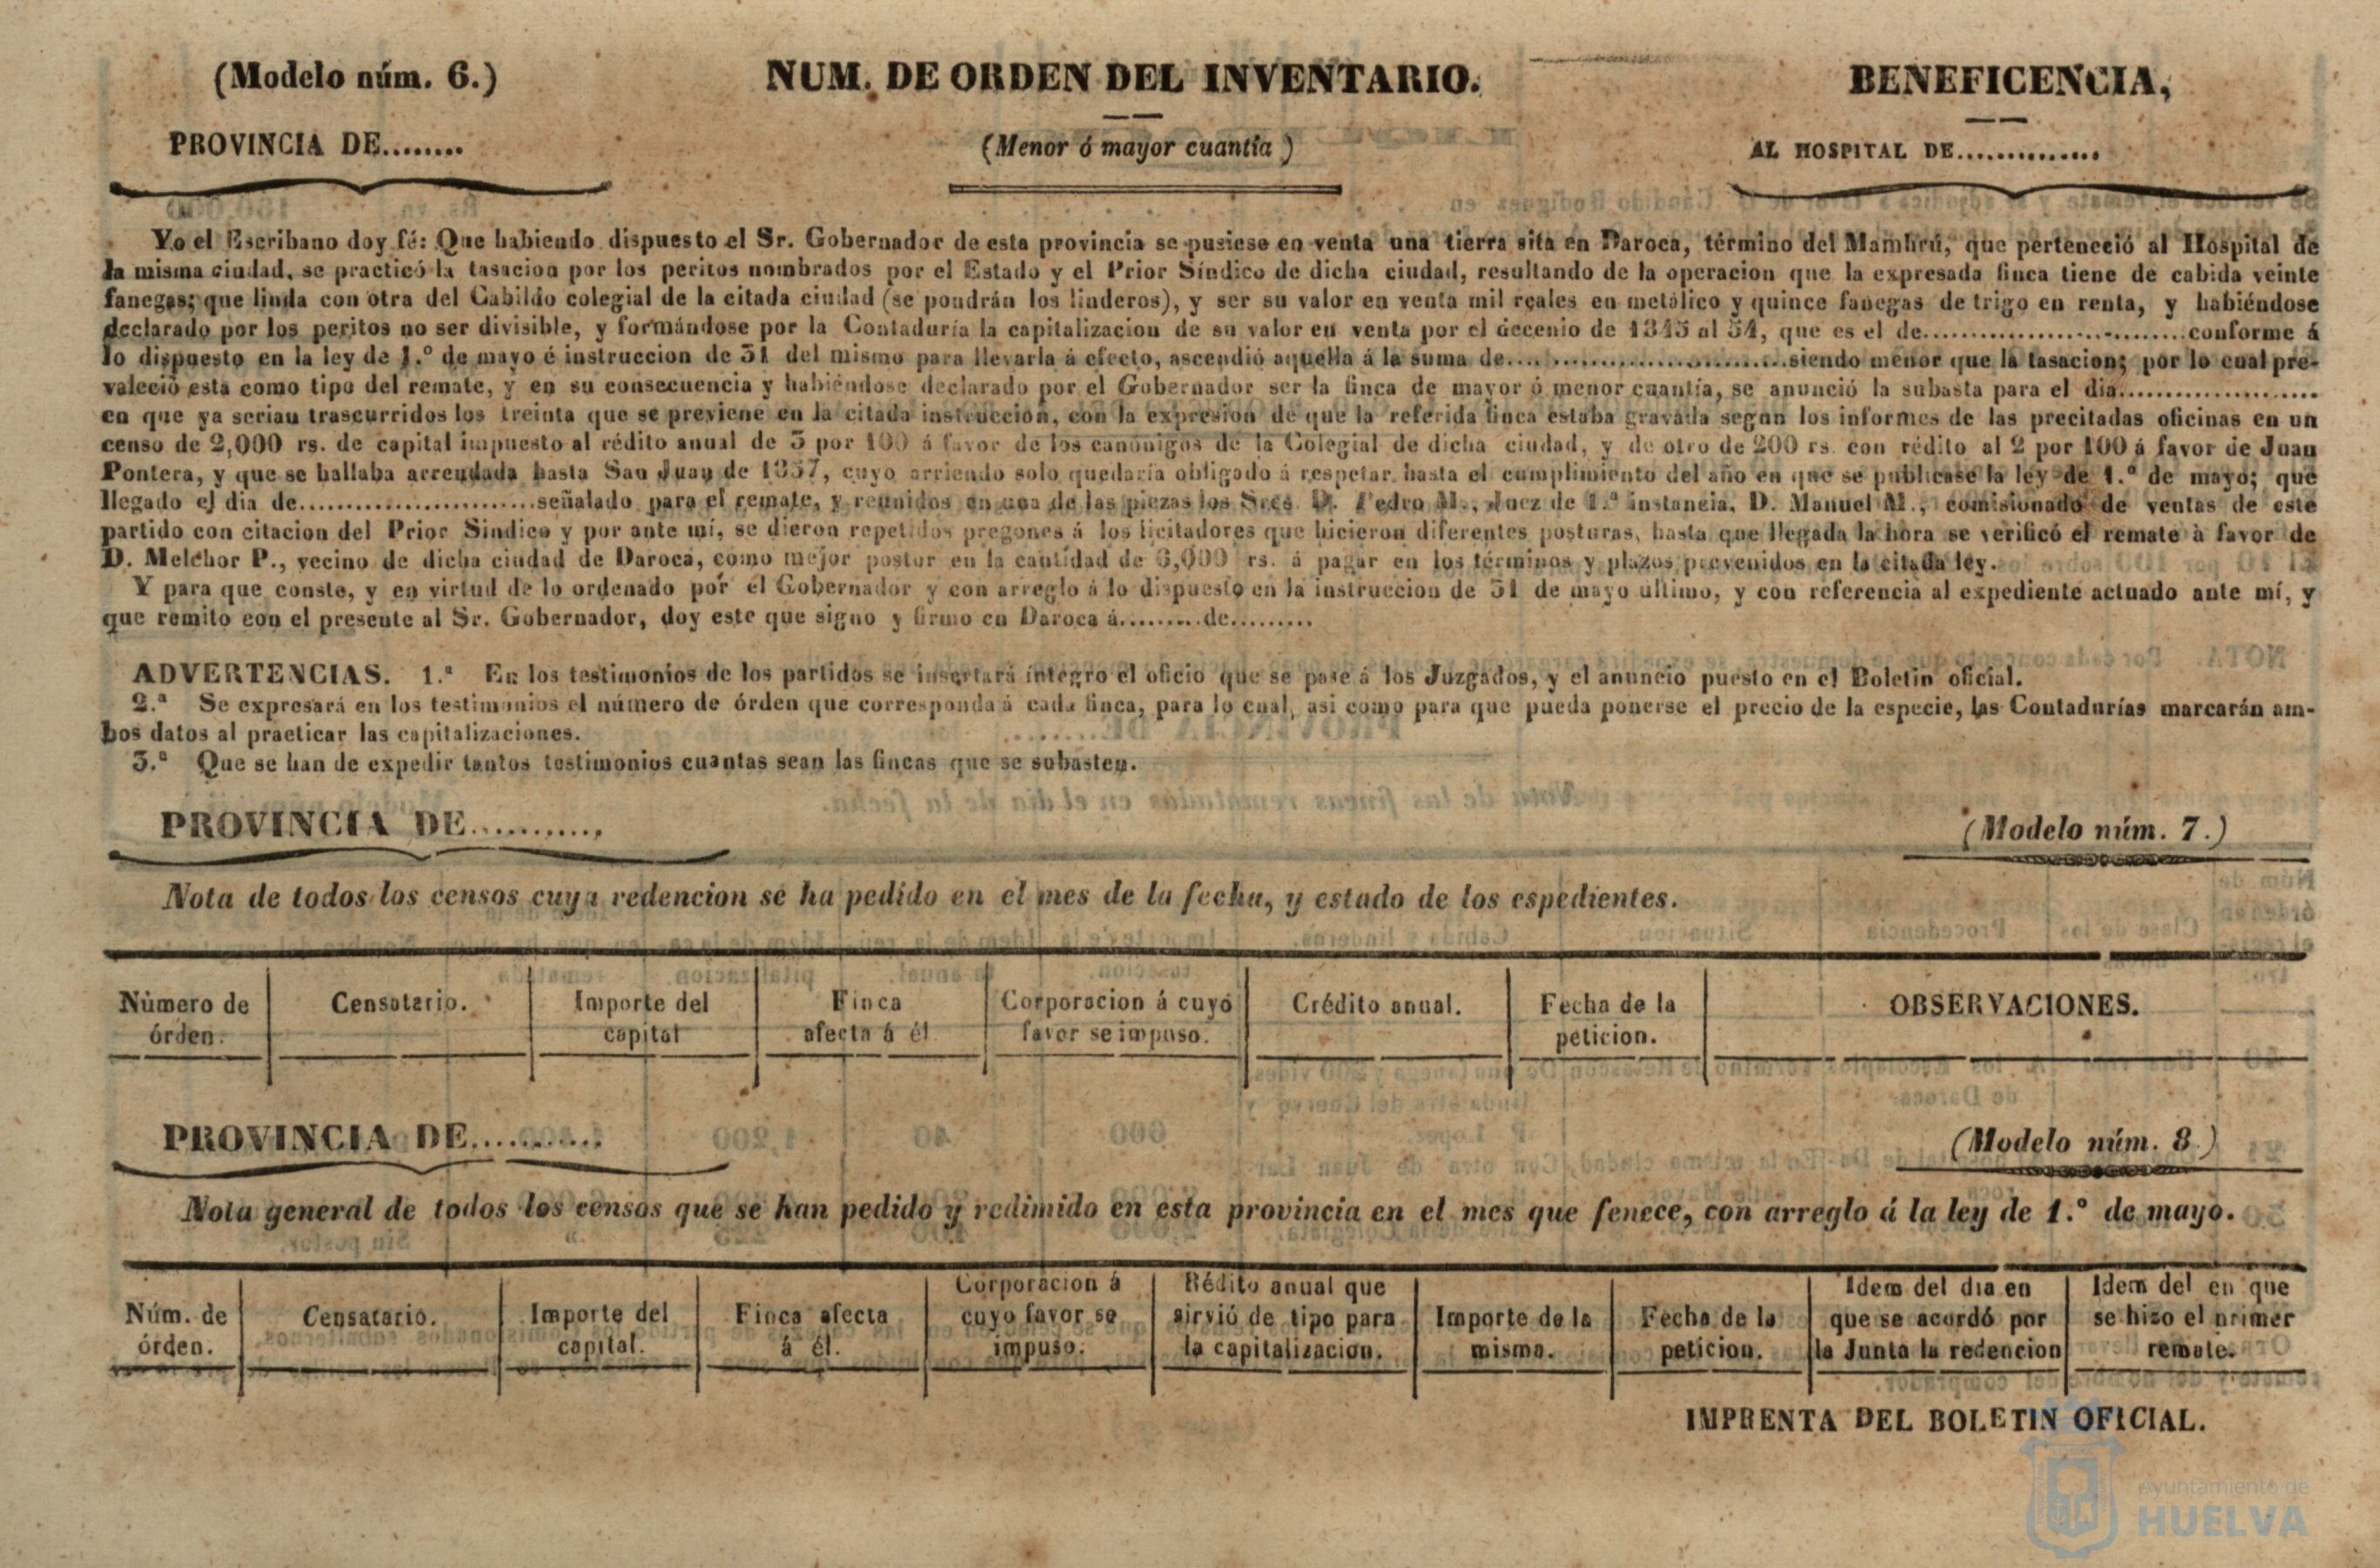 (Modelo núm. 6.)
NUM. DE ORDEN DEL INVENTARIO.
BENEFICENCIA,
PROVINCIA DE........
(Menor ó mayor cuantía )
AL HOSPITAL DE..............
Yo el Escribano doy fé: Que habiendo dispuesto el Sr. Gobernador de esta provincia se pusiese en venta una tierra sita en Daroca, término del Mambrú, que perteneció al Hospital de
la misma ciudad, se practicó la tasacion por los peritos nombrados por el Estado y el Prior Síndico de dicha ciudad, resultando de la operacion que la expresada finca tiene de cabida veinte
fanegas; que linda con otra del Cabildo colegial de la citada ciudad (se pondrán los linderos), y ser su valor en venta mil reales en metálico y quince fanegas de trigo en renta, y habiéndose
declarado por los peritos no ser divisible, y formándose por la Contaduría la capitalizacion de su valor en venta por el decenio de 1845 al 54, que es el de..........................conforme á
lo dispuesto en la ley de 1.º de mayo é instruccion de 31 del mismo para llevarla á efecto, ascendió aquella á la suma de...........................siendo menor que la tasacion; por lo cual pre-
valeció esta como tipo del remate, y en su consecuencia y habiéndose declarado por el Gobernador ser la finca de mayor ó menor cuantía, se anunció la subasta para el dia...................
en que ya serian trascurridos los treinta que se previene en la citada instruccion, con la expresion de que la referida finca estaba gravada segun los informes de las precitadas oficinas en un
censo de 2,000 rs. de capital impuesto al rédito anual de 3 por 100 á favor de los canónigos de la Colegial de dicha ciudad, y de otro de 200 rs. con rédito al 2 por 100 á favor de Juan
Pontera, y que se hallaba arrendada hasta San Juan de 1857, cuyo arriendo solo quedaría obligado á respetar hasta el cumplimiento del año en que se publicase la ley de 1.º de mayo; que
llegado el dia de.......................señalado para el remate, y reunidos en una de las piezas los Sres. D. Pedro M., Juez de 1.ª instancia, D. Manuel M., comisionado de ventas de este
partido con citacion del Prior Sindico y por ante mí, se dieron repetidos pregones á los licitadores que hicieron diferentes posturas, hasta que llegada la hora se verificó el remate à favor de
D. Melchor P., vecino de dicha ciudad de Daroca, como mejor postor en la cantidad de 6,000 rs. á pagar en los términos y plazos prevenidos en la citada ley.
Y para que conste, y en virtud de lo ordenado por el Gobernador y con arreglo á lo dispuesto en la instruccion de 31 de mayo ultimo, y con referencia al expediente actuado ante mí, y
que remito con el presente al Sr. Gobernador, doy este que signo y firmo en Daroca á.........de.........
ADVERTENCIAS. 1.ª En los testimonios de los partidos se insertará íntegro el oficio que se pase á los Juzgados, y el anuncio puesto en el Boletin oficial.
2.ª Se expresará en los testimonios el número de órden que corresponda á cada finca, para lo cual, asi como para que pueda ponerse el precio de la especie, las Contadurías marcarán am-
bos datos al practicar las capitalizaciones.
3.ª Que se han de expedir tantos testimonios cuantas sean las fincas que se subasten.
PROVINCIA DE...........
(Modelo núm. 7.)
Nota de todos los censos cuya redencion se ha pedido en el mes de la fecha, y estado de los espedientes.
Número de órden.
Censatario.
Importe del capital
Finca afecta á él
Corporacion á cuyo favor se impuso.
Crédito anual.
Fecha de la peticion.
OBSERVACIONES.
PROVINCIA DE...........
(Modelo núm. 8.)
Nota general de todos los censos que se han pedido y redimido en esta provincia en el mes que fenece, con arreglo á la ley de 1.º de mayo.
Núm. de órden.
Censatario.
Importe del capital.
Finca afecta á él.
Corporacion á cuyo favor se impuso.
Rédito anual que sirvió de tipo para la capitalizacion.
Importe de la misma.
Fecha de la peticion.
Idem del dia en que se acordó por la Junta la redencion
Idem del en que se hizo el primer remate.
IMPRENTA DEL BOLETIN OFICIAL.
Ayuntamiento de
HUELVA